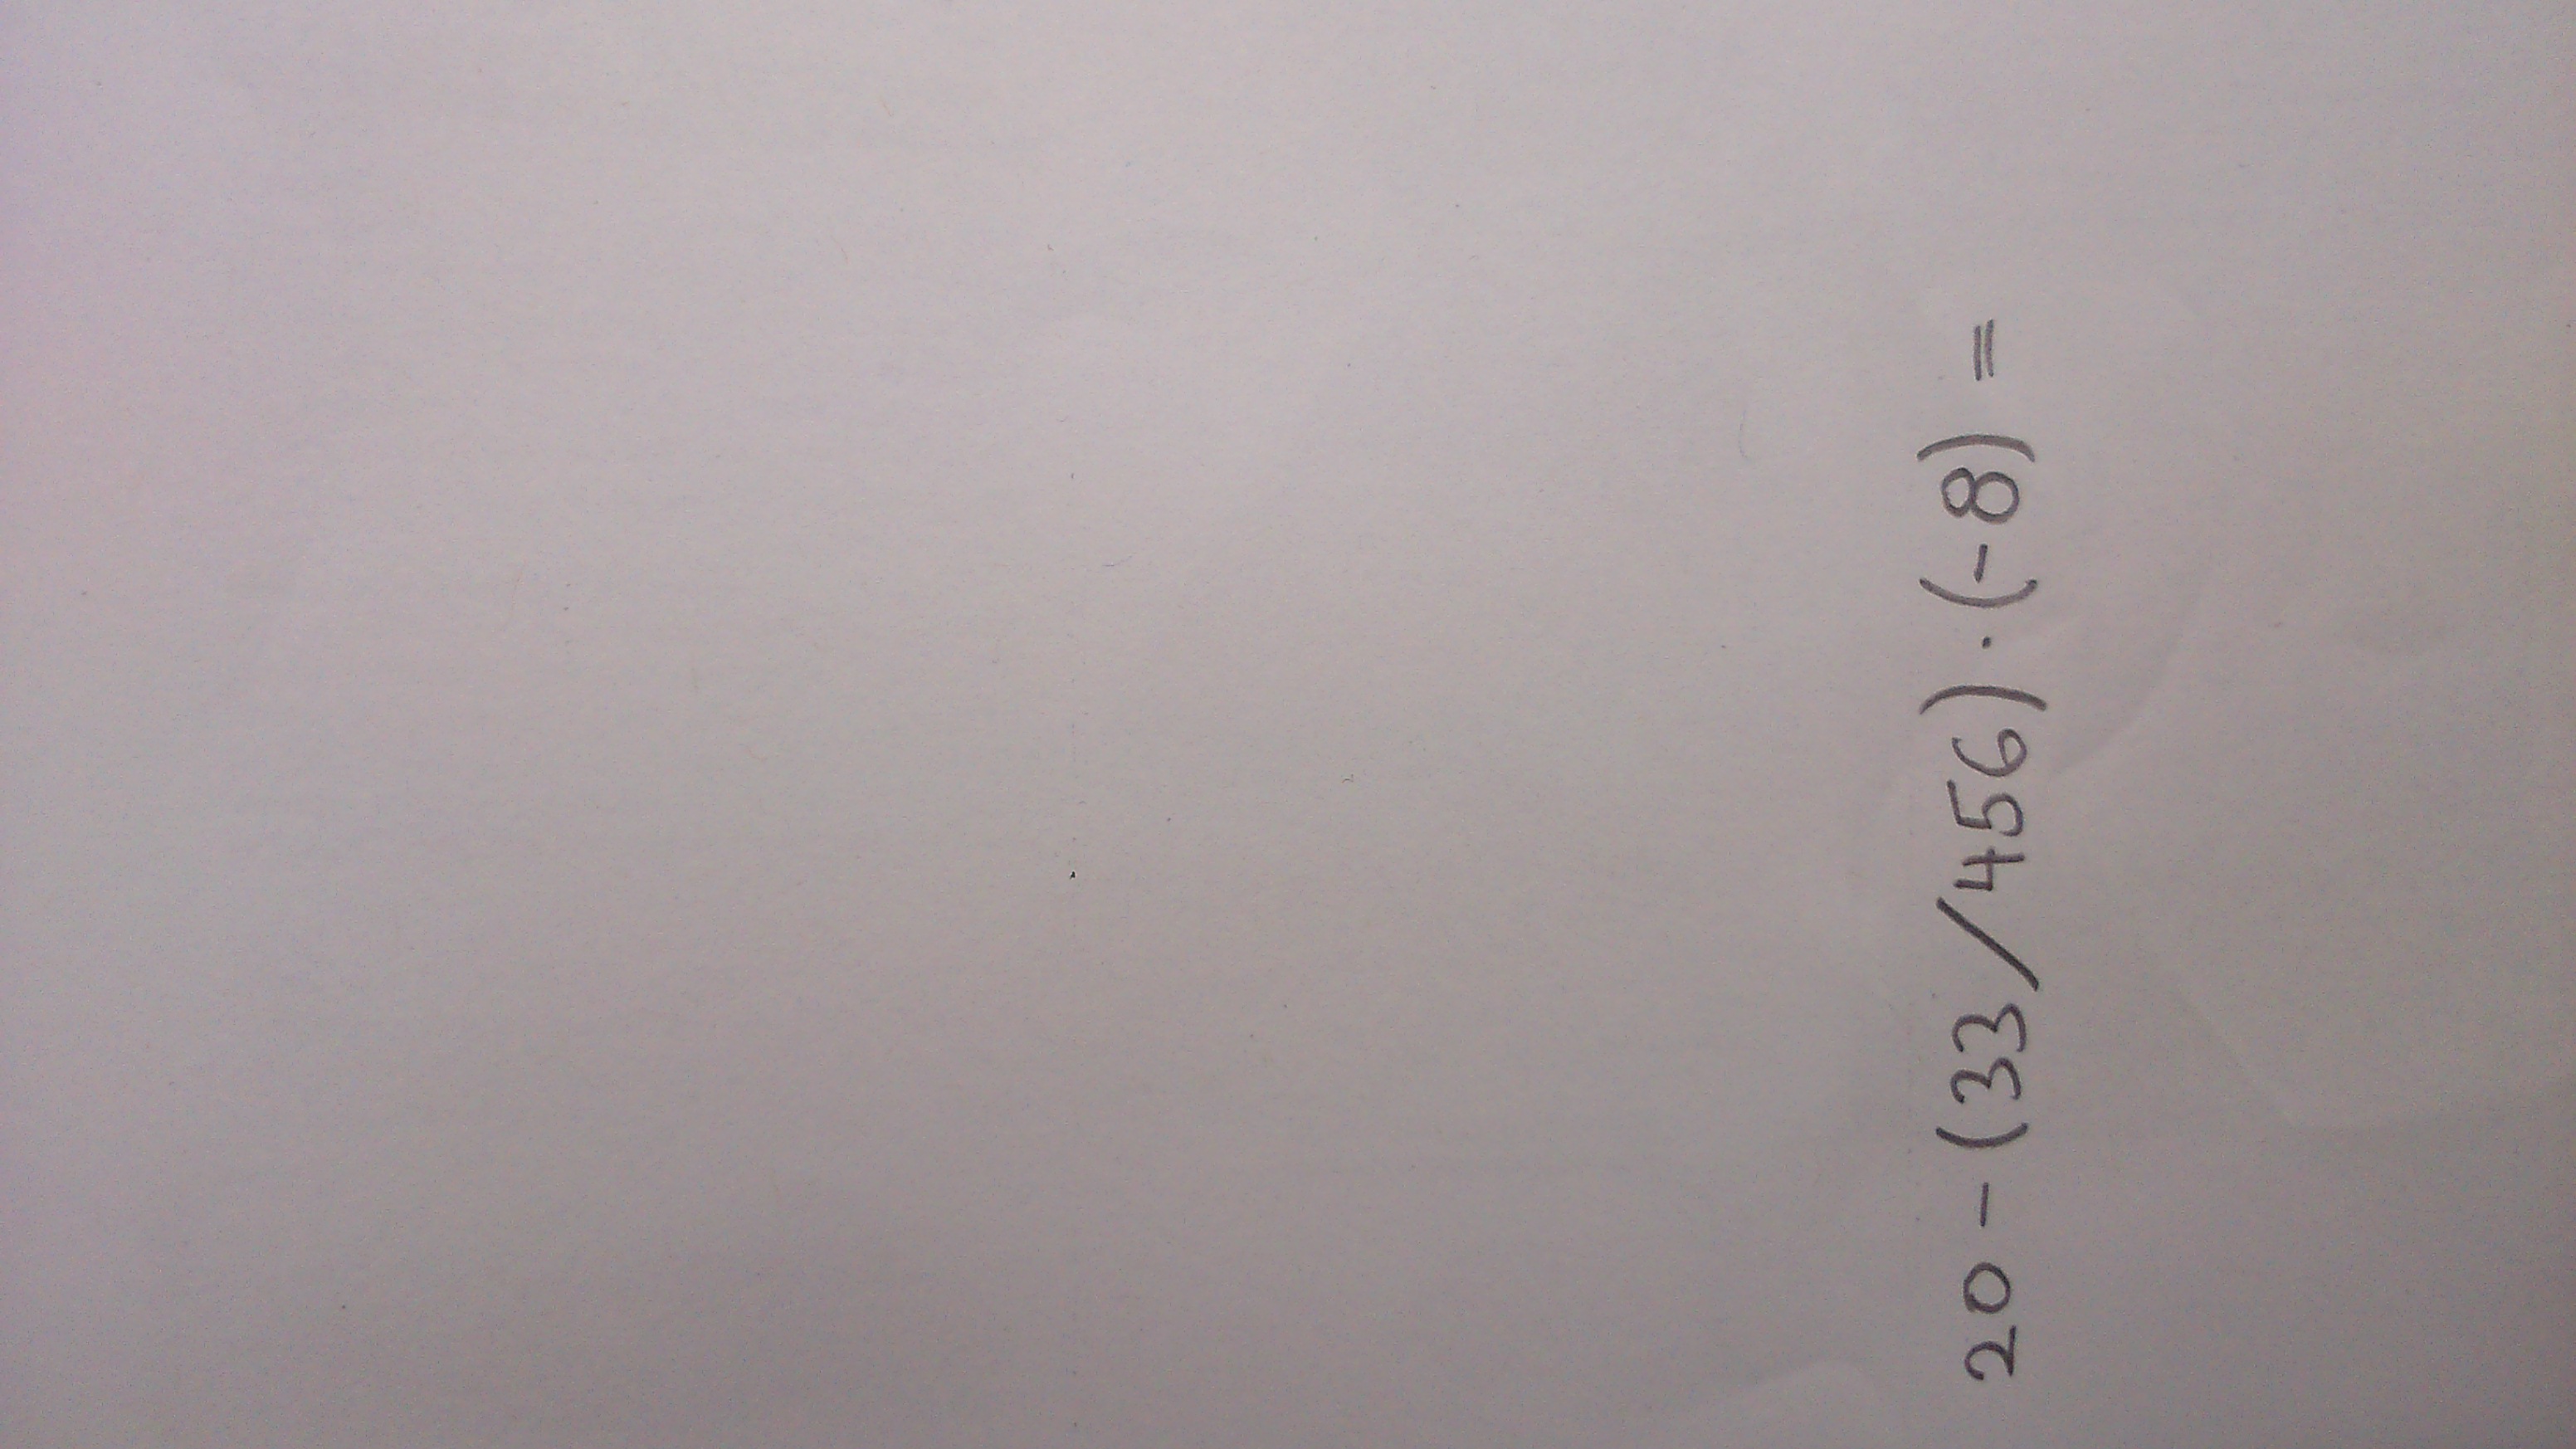 20 - (33/456) · (-8) =